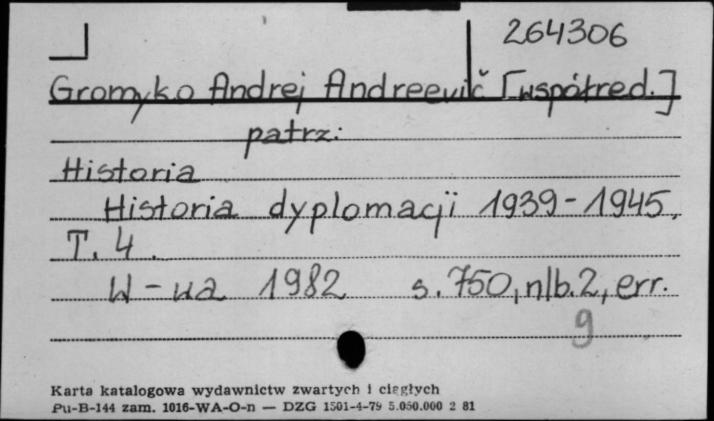 264306
Gromyko Andrej Andreevič [współred.]
patrz:
Historia
Historia dyplomacji 1939-1945.
T. 4.
W-wa 1982 s. 750, nlb. 2, err.
9
Karta katalogowa wydawnictw zwartych i ciągłych
Pu-B-144 zam. 1016-WA-O-n — DZG 1501-4-79 5.050.000 2 81